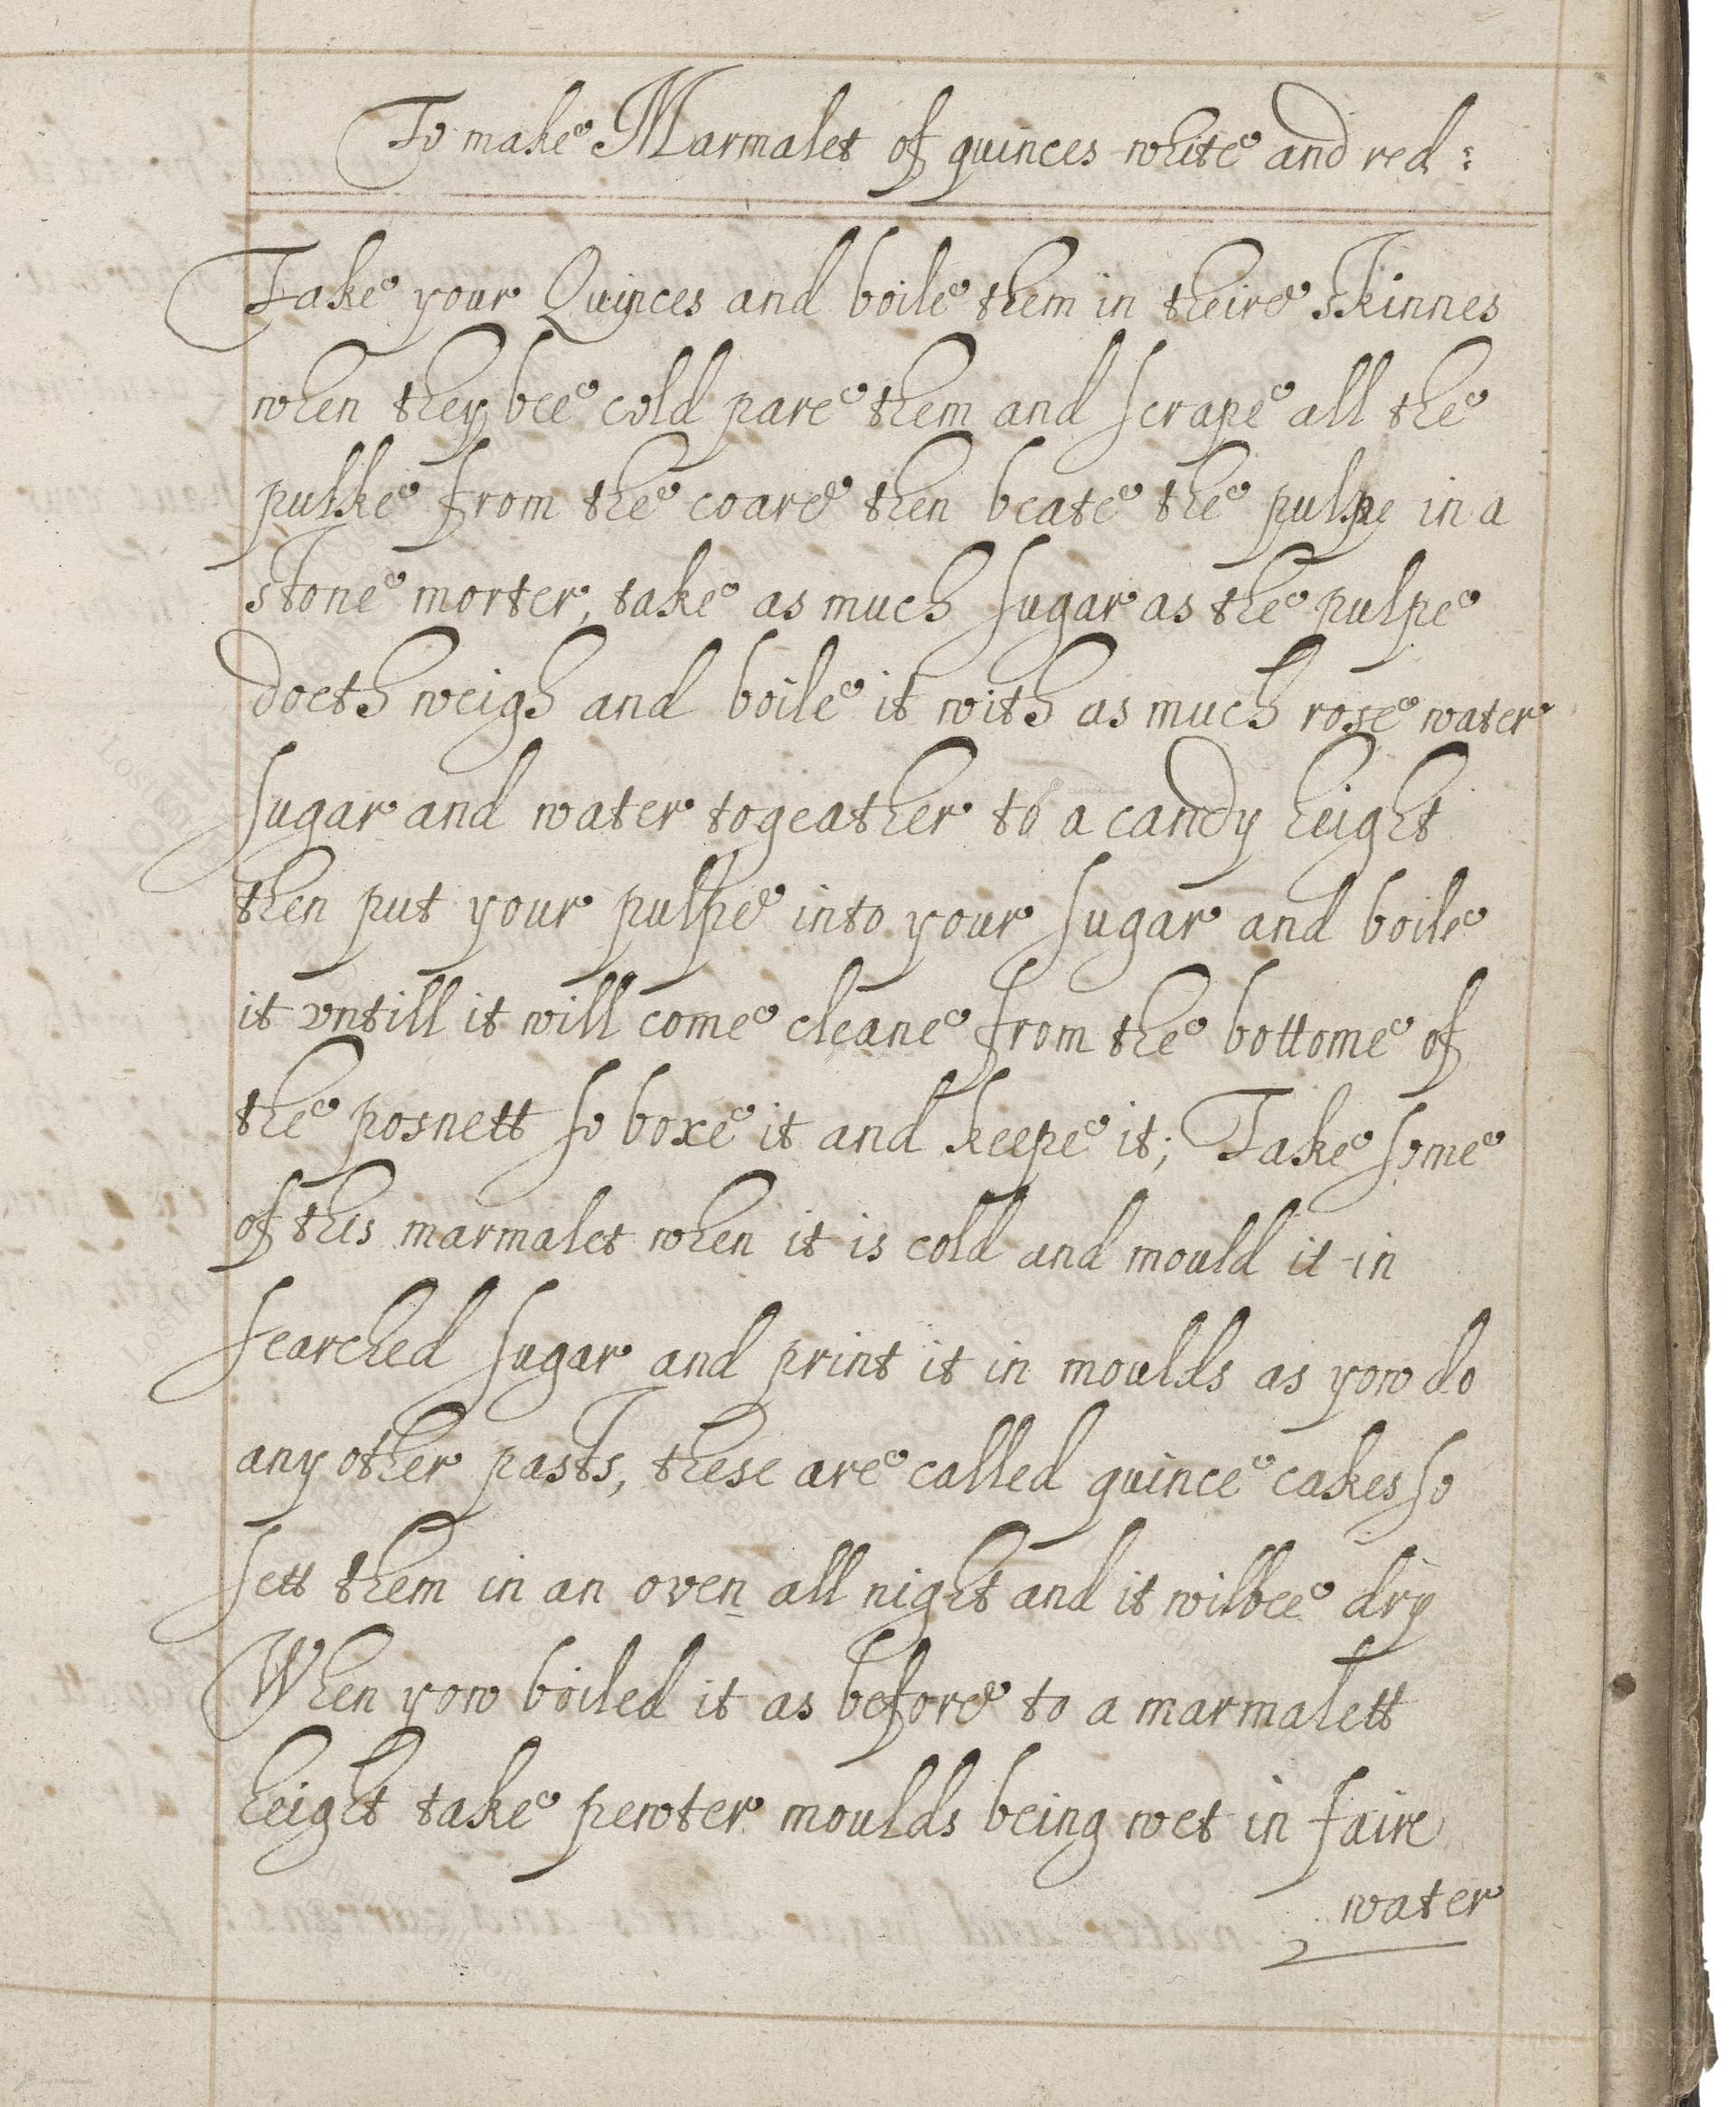 To make Marmalet of quinces white and red:
Take your Quinces and boile them in theire skinnes
when they bee cold pare them and scrape all the
pulke from the coare then beate the pulpe in a
stone morter, take as much sugar as the pulpe
doeth weigh and boile it with as much rose water
sugar and water togeather to a candy height
then put your pulpe into your sugar and boile
it vntill it will come cleane from the bottome of
the posnett so boxe it and keepe it; Take some
of this marmalet when it is cold and mould it in
searched sugar and print it in moulds as yow do
any other pasts, these are called quince cakes so
sett them in an oven all night and it wilbee dry
When yow boiled it as before to a marmalett
height take pewter moulds being wet in faire
water